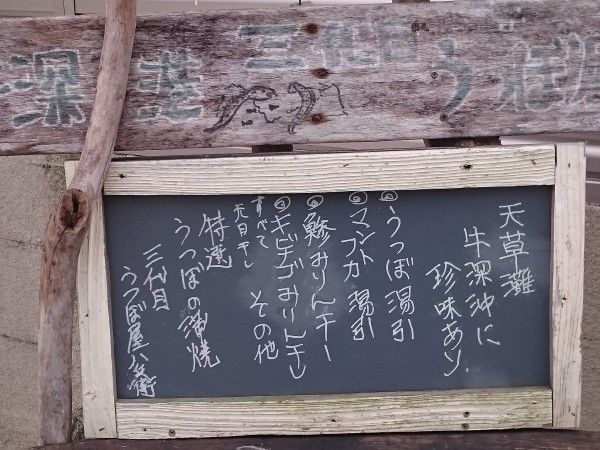 深港 三代目 うつぼ屋
天草灘
牛深沖に
珍味あり。
◎うつぼ湯引
◎マントフカ湯引
◎鯵みりん干し
◎キビナゴみりん干し
その他
すべて
天日干し
特選
うつぼの蒲焼
三代目
うつぼ屋八兵衛